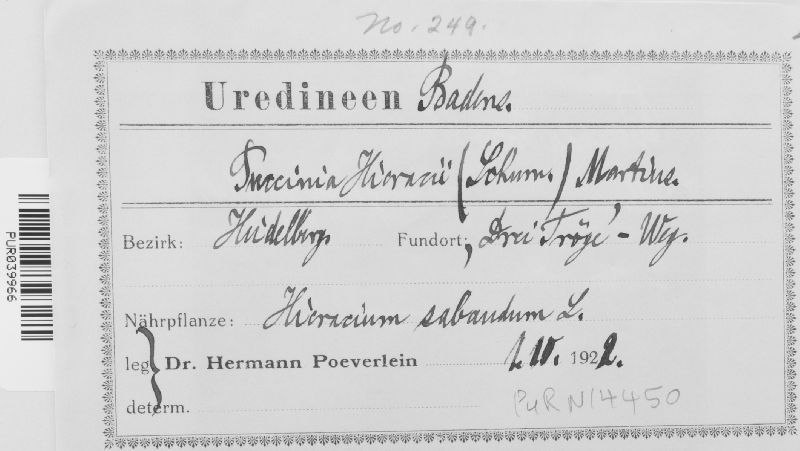 No. 249.
Uredineen Badens.
Puccinia Hieracii (Schum.) Martius.
Bezirk: Heidelberg. Fundort: „Drei Tröge"-Weg.
Nährpflanze: Hieracium sabaudum L.
leg. Dr. Hermann Poeverlein 1922.
determ.
PuR N14450
PUR039966